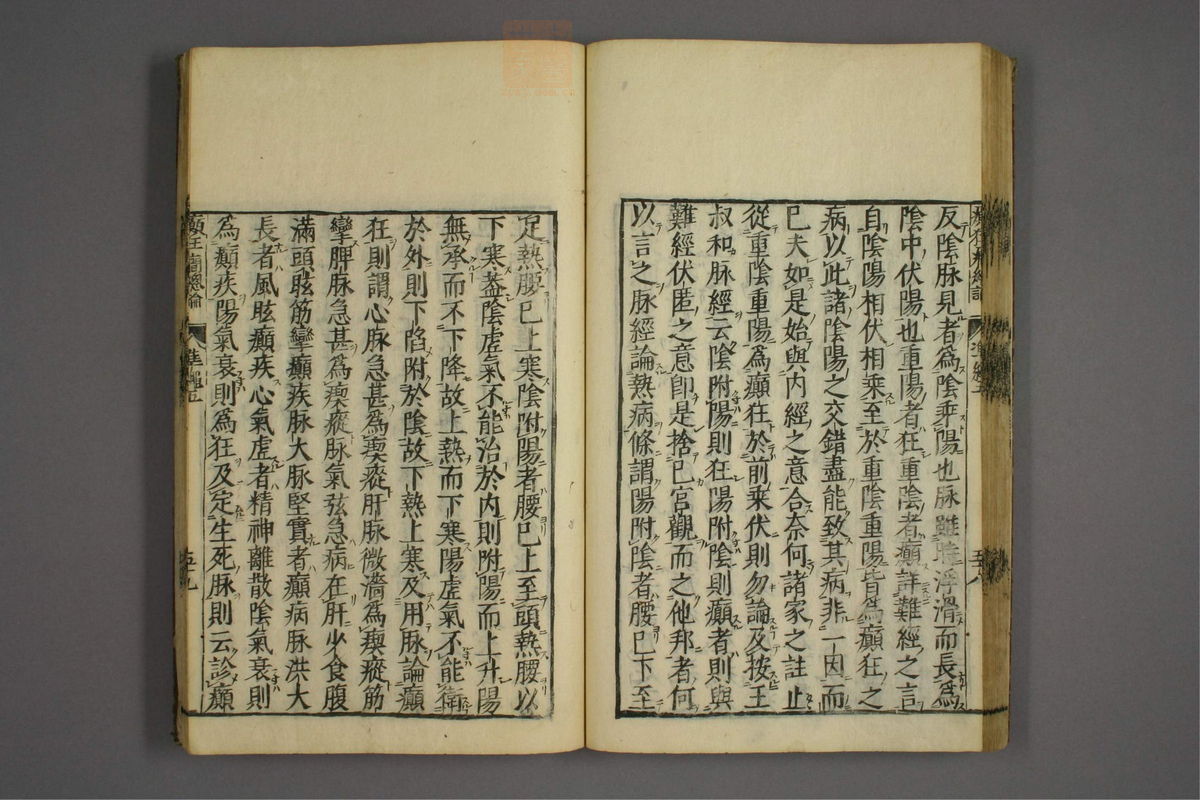 反陰脉見者爲陰乘陽也脉雖時浮滑而長爲
陰中伏陽也重陽者狂重陰者癲詳難經之言
自陰陽相伏相乘至於重陰重陽皆爲癲狂之
病以此諸陰陽之交錯盡能致其病非一因而
已夫如是始與内經之意合奈何諸家之註止
從重陰重陽爲癲狂於前乘伏則勿論及按王
叔和脉經云陰附陽則狂陽附陰則癲者則與
難經伏匿之意卽是捨已宮觀而之他邦者何
以言之脉經論熱病條謂陽附陰者腰已下至
足熱腰已上寒陰附陽者腰已上至頭熱腰以
下寒蓋陰虗氣不能治於内則附陽而上升陽
無承而不下降故上熱而下寒陽虗氣不能衛
於外則下陷附於陰故下熱上寒及用脉論癲
狂則謂心脉急甚爲瘈瘲肝脉微濇爲瘈瘲筋
攣脾脉急甚爲瘈瘲脉氣弦急病在肝少食腹
滿頭眩筋攣癲疾脉大脉堅實者癲病脉洪大
長者風眩癲疾心氣虗者精神離散陰氣衰則
爲癲疾陽氣衰則爲狂及定生死脉則云診癲
癲狂癇總論
準繩五
五十九